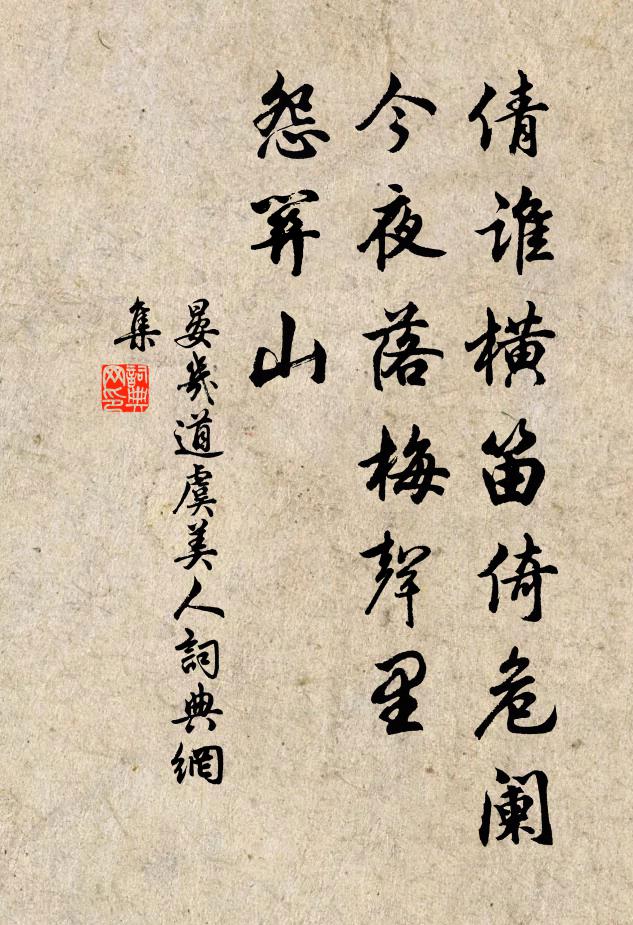 倩谁橫笛倚危阑
今夜落梅聲里
怨關山
晏幾道虞美人詞典網
集
詞典
网印